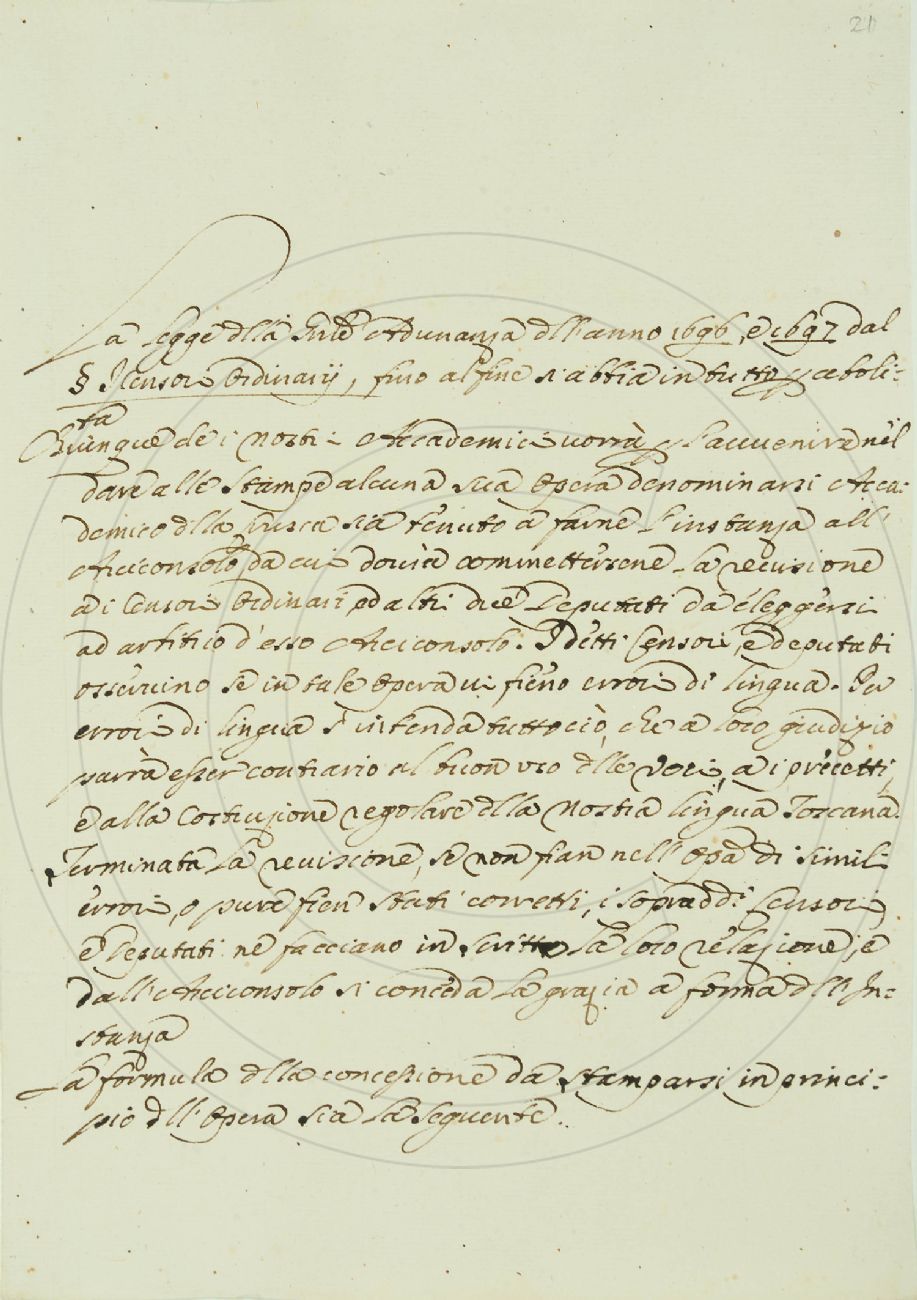 21
La Legge dlla Gnle Adunanza dll'anno 1696, e 1697 dal
§ I Censori Ordinarij, fino al fine si abbia in tutto p aboli=
ta
Chiunque de i nostri Accademici vorrà p l'avvenire nel
dare alle stampe alcuna sua Opera denominarsi Acca=
demico dlla Crusca sia tenuto a farne l'instanza all'
Arciconsolo, da cui dovrà commettersene la revisione
a i Censori Ordinari, ed altri due Deputati da éleggersi
ad arbitrio d'esso Arciconsolo. I detti Censori, e deputati
osservino se in tale Opera vi sieno errori di lingua. Per
errori di lingua s'intenda tutto ciò, che a loro giudizio
parrà esser contrario al buon uso dlle voci, a i precetti,
e alla Costruzione regolare dlla nostra lingua Toscana.
Terminata la revisione, se non sian nell'Opa di simili
errori, o pure sien stati corretti, i sopraddi Censori,
e Deputati ne facciano in scritto la loro relazione, e
dall'Arciconsolo si conceda la grazia a forma dll'In=
stanza
La formula dlla concessione da stamparsi in princi=
pio dll'Opera sia la seguente.